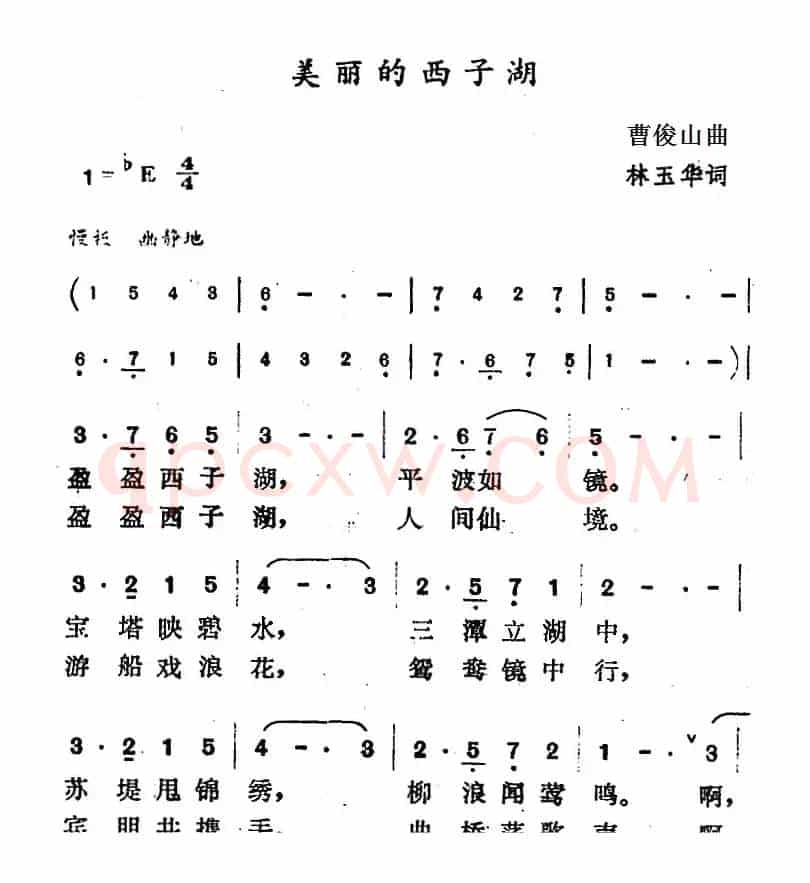 美丽的西子湖
曹俊山曲
1=♭E 4/4
林玉华词
慢板 幽静地
(1 5 4 3 | 6 - · - | 7 4 2 7 | 5 - · - |
6 · 7 1 5 | 4 3 2 6 | 7 · 6 7 5 | 1 - · - )|
3 · 7 6 5 | 3 - · - | 2 · 6 7 6 | 5 - · - |
盈盈西子湖，平波如镜。
盈盈西子湖，人间仙境。
qpcxw.COM
3 · 2 1 5 | 4 - · 3 | 2 · 5 7 1 | 2 - · - |
宝塔映碧水，三潭立湖中，
游船戏浪花，鸳鸯镜中行，
3 · 2 1 5 | 4 - · 3 | 2 · 5 7 2 | 1 - · ∨ 3 |
苏堤甩锦绣，柳浪闻莺鸣。啊，